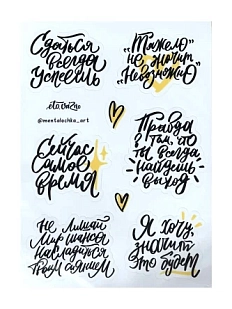 Сдаться
всегда
успеешь
„Тяжело"
не значит
„Невозможно"
это важно
@mentalochka_art
Сейчас
самое
время
Правда
в том, что
ты всегда
найдешь
выход
Не лишай
мир шанса
насладиться
твоим сиянием
Я хочу,
значит
это будет